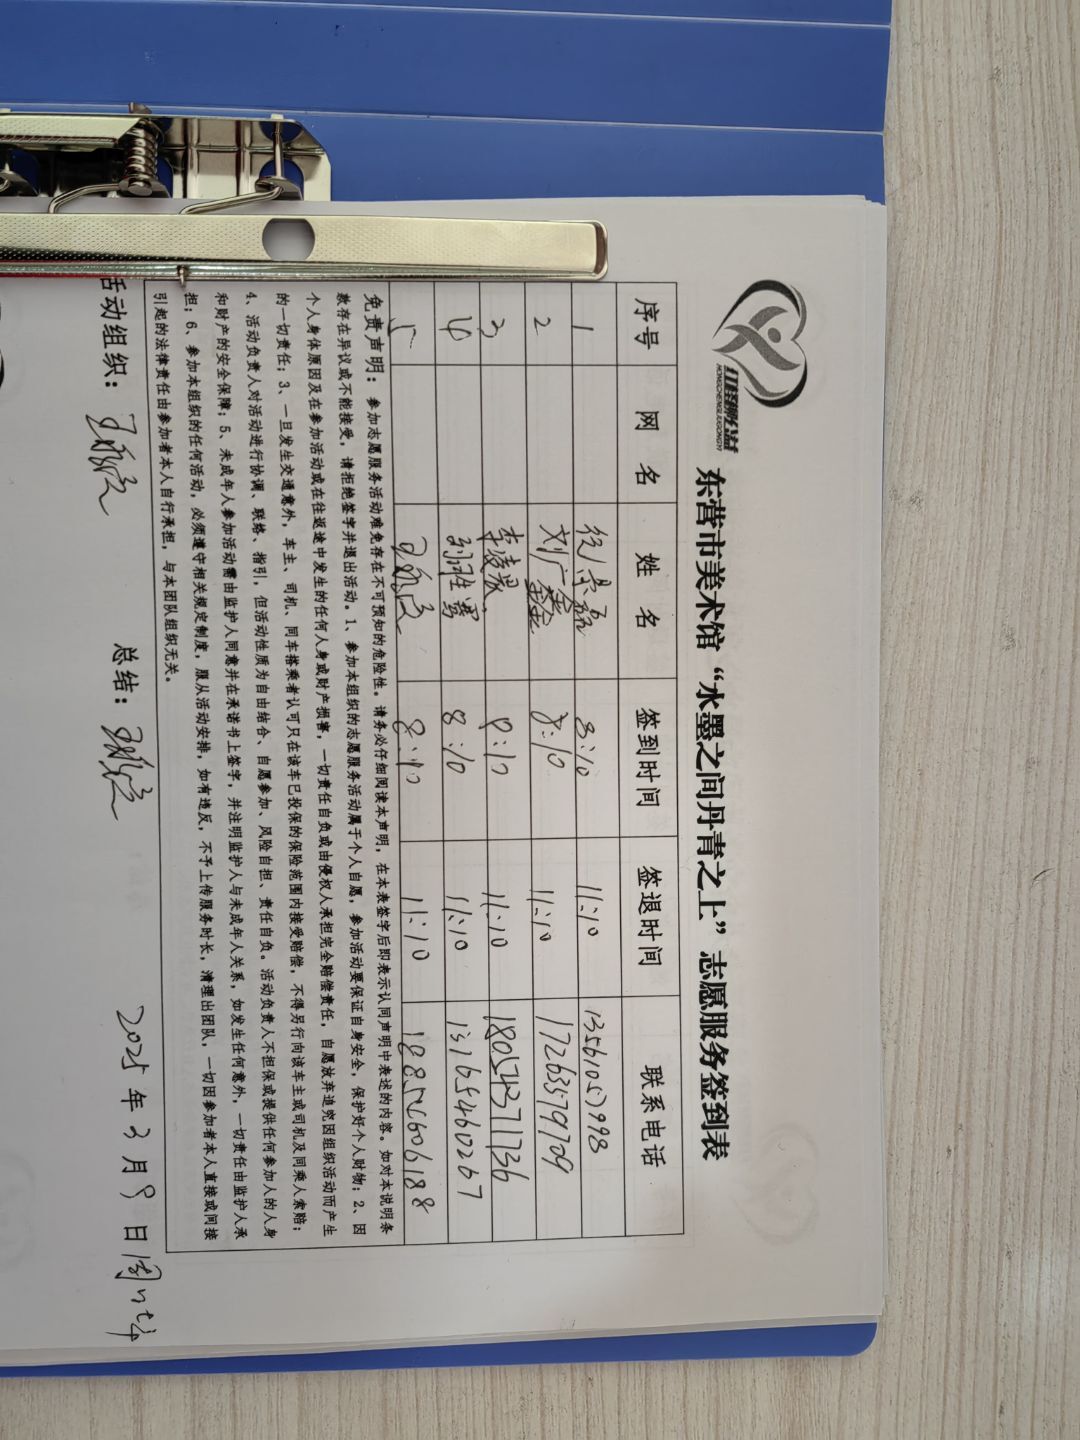 红橙柳公益
HONGCHENGLIUGONGYI
东营市美术馆“水墨之间丹青之上”志愿服务签到表
序号 网 名 姓 名 签到时间 签退时间 联系电话
1 8:10 11:10 13561057998
2 刘广鑫 8:10 11:10 17263579709
3 李凌晨 8:10 11:10 18054371736
4 8:10 11:10 13165460267
5 8:10 11:10 18854606188
免责声明:参加志愿服务活动难免存在不可预知的危险性。请务必仔细阅读本声明,在本表签字后即表示认同声明中表述的内容。如对本说明条
款存在异议或不能接受,请拒绝签字并退出活动。1、参加本组织的志愿服务活动属于个人自愿,参加活动要保证自身安全,保护好个人财物;2、因
个人身体原因及在参加活动或在往返途中发生的任何人身或财产损害,一切责任自负或由侵权人承担完全赔偿责任,自愿放弃追究因组织活动而产生
的一切责任;3、一旦发生交通意外,车主、司机、同车搭乘者认可只在该车已投保的保险范围内接受赔偿,不得另行向该车主或司机及同乘人索赔;
4、活动负责人对活动进行协调、联络、指引,但活动性质为自由结合、自愿参加、风险自担、责任自负。活动负责人不担保或提供任何参加人的人身
和财产的安全保障;5、未成年人参加活动需由监护人同意并在承诺书上签字,并注明监护人与未成年人关系,如发生任何意外,一切责任由监护人承
担;6、参加本组织的任何活动,必须遵守相关规定制度,服从活动安排,如有违反,不予上传服务时长,清理出团队,一切因参加者本人直接或间接
引起的法律责任由参加者本人自行承担,与本团队组织无关。
活动组织: 总结: 2025 年 3 月 9 日 周